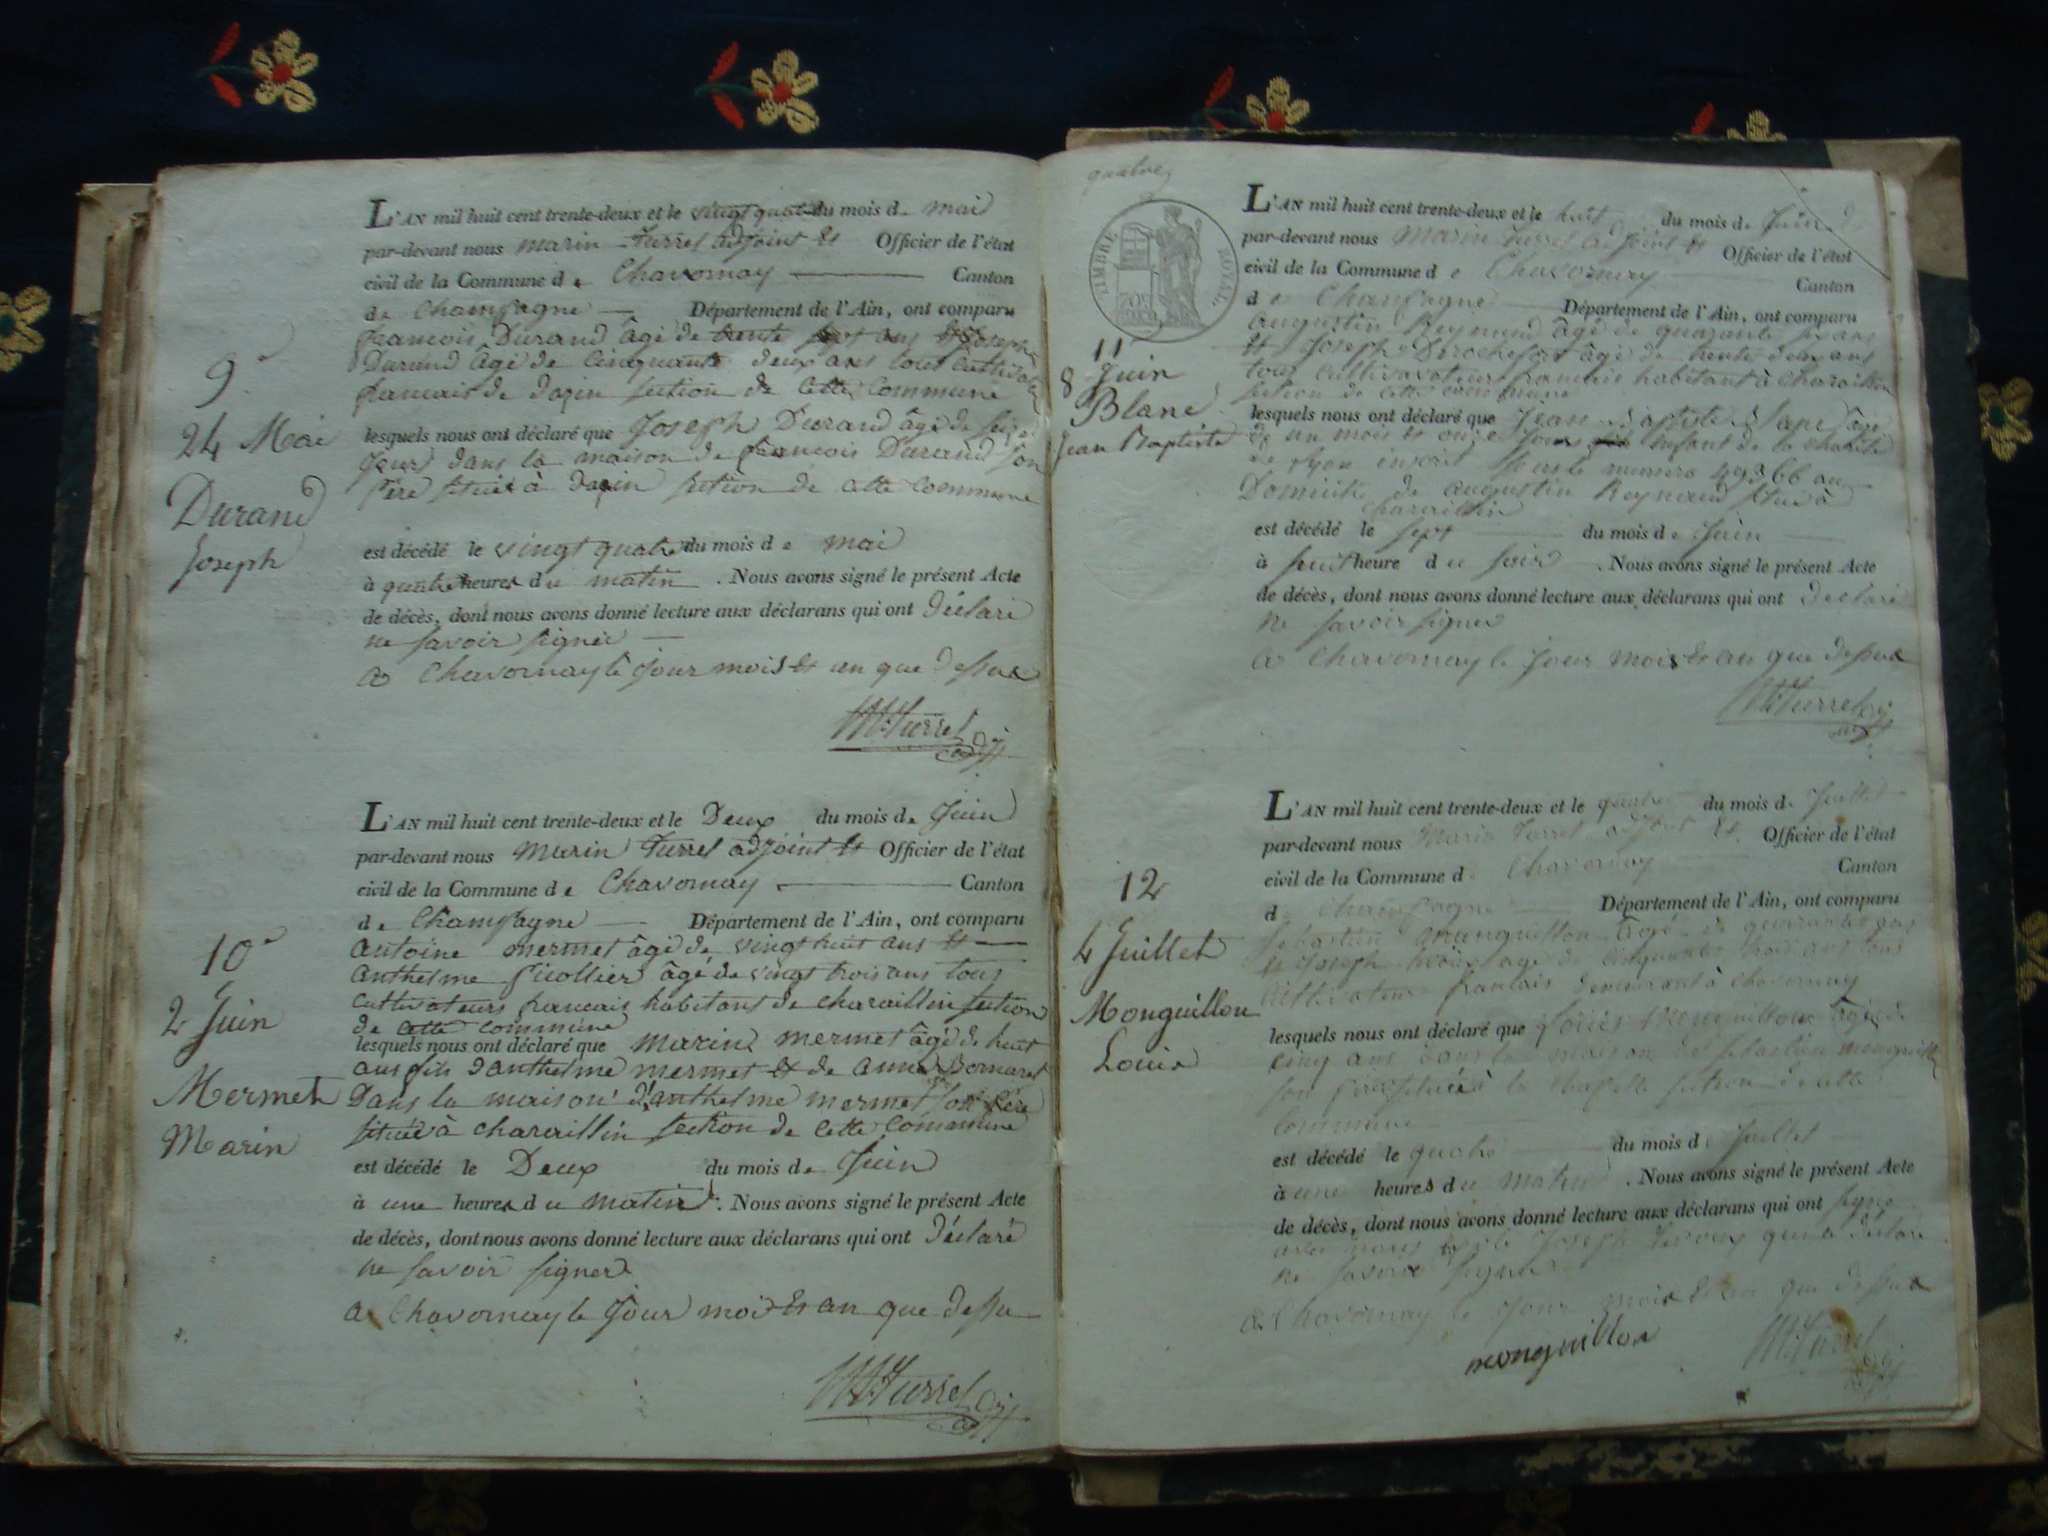 9e
24 Mai
Durand
Joseph
L'AN mil huit cent trente-deux et le vingt quatre du mois de mai
par-devant nous marin Turrel adjoint et Officier de l'état
civil de la Commune de Chavornay Canton
de Champagne Département de l'Ain, ont comparu
francois Durand âgé de trente sept ans et Joseph
Durand âgé de Cinquante deux ans tous cultivateurs
francais de dazin section de cette commune
lesquels nous ont déclaré que Joseph Durand âgé de
jours dans la maison de francois Durand son
père située à dazin section de cette commune
est décédé le vingt quatre du mois de mai
à quatre heures du matin . Nous avons signé le présent Acte
de décès, dont nous avons donné lecture aux déclarans qui ont déclaré
ne savoir signer
a Chavornay le jour mois et an que dessus
M. Turrel adjt
10e
2 Juin
Mermet
Marin
L'AN mil huit cent trente-deux et le Deux du mois de Juin
par-devant nous marin Turrel adjoint et Officier de l'état
civil de la Commune de Chavornay Canton
de Champagne Département de l'Ain, ont comparu
antoine mermet âgé de vingt huit ans et
anthelme picollier âgé de vingt trois ans tous
cultivateurs francais habitant de charaillin section
de cette commune
lesquels nous ont déclaré que marin mermet âgé de huit
ans fils d'anthelme mermet et de anne Bornaret
Dans la maison d'anthelme mermet son père
située à charaillin section de cette commune
est décédé le Deux du mois de Juin
à une heures du matin . Nous avons signé le présent Acte
de décès, dont nous avons donné lecture aux déclarans qui ont déclaré
ne savoir signer
a Chavornay le jour mois et an que dessu
M. Turrel adjt
quatre
TIMBRE ROYAL
11
8 Juin
Blanc
Jean Baptiste
L'AN mil huit cent trente-deux et le huit du mois de Juin
par-devant nous Marin Turrel adjoint et Officier de l'état
civil de la Commune de Chavornay Canton
de Champagne Département de l'Ain, ont comparu
augustin Reynaud âgé de quarante six ans
et Joseph âgé de trente deux ans
tous cultivateurs francais habitant à Charaillin
section de cette commune
lesquels nous ont déclaré que Jean Baptiste Blanc âgé
de un mois et onze jours enfant de la charité
de Lyon inscrit sous le numero 49366 au
Domicile de augustin Reynaud situé à
charaillin
est décédé le sept du mois de Juin
à huit heure du soir . Nous avons signé le présent Acte
de décès, dont nous avons donné lecture aux déclarans qui ont déclaré
ne savoir signer
a Chavornay le jour mois et an que dessus
M. Turrel adjt
12
4 Juillet
Monguillon
Louis
L'AN mil huit cent trente-deux et le quatre du mois de Juillet
par-devant nous Marin Turrel adjoint et Officier de l'état
civil de la Commune de Chavornay Canton
de Champagne Département de l'Ain, ont comparu
Sebastien monguillon âgé de quarante ans
et Joseph âgé de cinquante trois ans tous
cultivateurs francais demeurant à Chavornay
lesquels nous ont déclaré que Louis Monguillon âgé de
cinq ans dans la maison de Sebastien monguillon
son père située à la chapelle section de cette
Commune
est décédé le quatre du mois de Juillet
à une heures du matin . Nous avons signé le présent Acte
de décès, dont nous avons donné lecture aux déclarans qui ont signé
avec nous Joseph qui a déclaré
ne savoir signer
a Chavornay le jour mois et an que dessus
monguillon
M. Turrel adjt